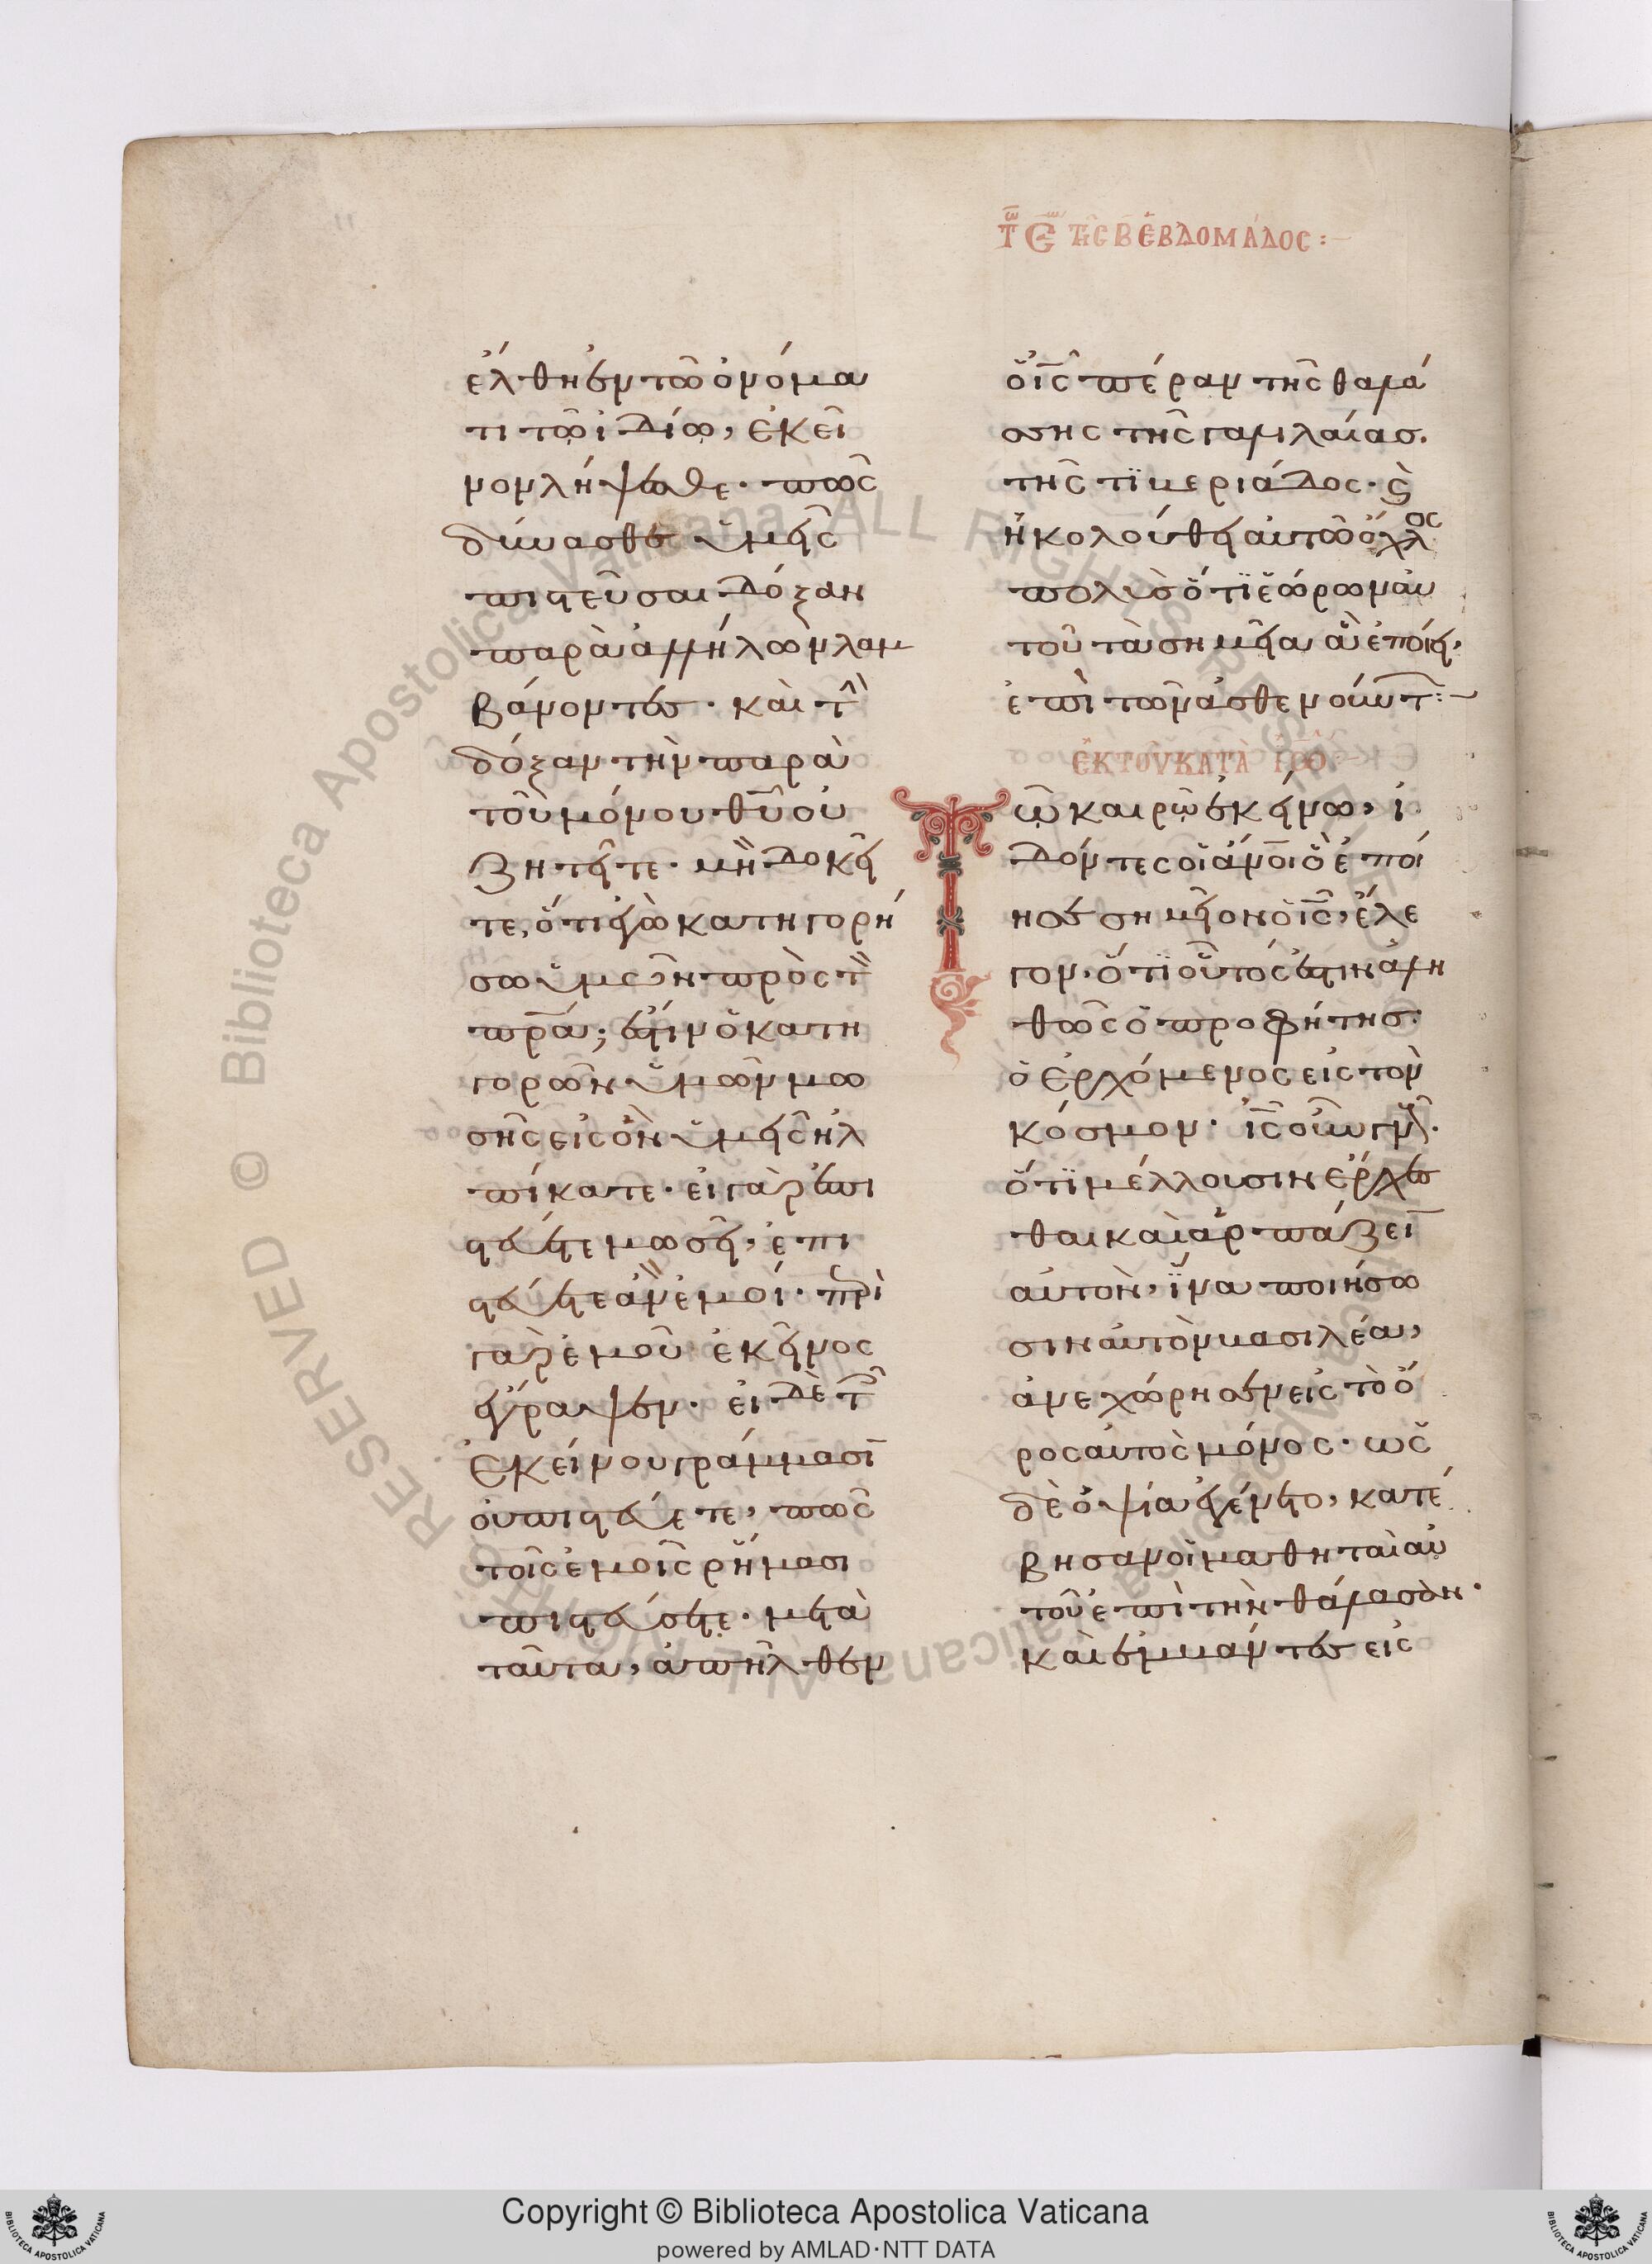 ἔλθη ἐν τῶ ὀνόμα
τι τῶ ἰδίω, ἐκεῖ
νον λήψεσθε· πῶς
δύνασθε ὑμεῖς
πιστεῦσαι δόξαν
παρὰ ἀλλήλων λαμ
βάνοντες· καὶ τὴν
δόξαν τὴν παρὰ
τοῦ μόνου θῦ οὐ
ζητεῖτε· μὴ δοκεῖ
τε, ὅτι ἐγὼ κατηγορή
σω ὑμῶν πρὸς τὸν
πρ̅α̅; ἔστιν ὁ κατη
γορῶν ὑμῶν μω
σῆς εἰς ὃν ὑμεῖς ἠλ
πίκατε· εἰ γὰρ ἐπι
στεύετε μωσεῖ, ἐπι
στεύετε ἂν ἐμοί· περὶ
γὰρ ἐμοῦ ἐκεῖνος
ἔγραψεν· εἰ δὲ τοῖς
ἐκείνου γράμμασι
οὐ πιστεύετε, πῶς
τοῖς ἐμοῖς ῥήμασι
πιστεύσετε· μετὰ
ταῦτα, ἀπῆλθεν
ΤΩ ϛ ΤΗΣ Β ΕΒΔΟΜΑΔΟΣ:—
ὁ ἰ̅ς̅ πέραν τῆς θαλά
σσης τῆς γαλιλαίας.
τῆς τιβεριάδος· ϗ
ἠκολούθει αὐτῶ ὄχλος
πολὺς ὅτι ἑώρων αὐ
τοῦ τὰ σημεῖα ἃ ἐποίει,
ἐπὶ τῶν ἀσθενούντ:—
ΕΚ ΤΟΥ ΚΑΤΑ ΙΩ
Τῶ καιρῶ ἐκείνω, ἰ
δόντες οἱ ἄνοι ὃ ἐποί
ησε σημεῖον ὁ ἰ̅ς̅, ἔλε
γον· ὅτι οὗτός ἐστιν ἀλη
θῶς ὁ προφήτης.
ὁ ἐρχόμενος εἰς τὸν
κόσμον· ἰ̅ς̅ οὖν γνοὺς.
ὅτι μέλλουσιν ἔρχεσ
θαι καὶ ἁρπάζειν
αὐτὸν, ἵνα ποιήσω
σιν αὐτὸν βασιλέα,
ἀνεχώρησεν εἰς τὸ ὄ
ρος αὐτὸς μόνος· ὡς
δὲ ὀψία ἐγένετο, κατέ
βησαν οἱ μαθηταὶ αὐ
τοῦ ἐπὶ τὴν θάλασσαν·
καὶ ἐμβάντες εἰς
Copyright © Biblioteca Apostolica Vaticana
powered by AMLAD·NTT DATA
RESERVED © Biblioteca Apostolica Vaticana ALL RIGHTS RESERVED
BIBLIOTECA APOSTOLICA VATICANA
BIBLIOTECA APOSTOLICA VATICANA